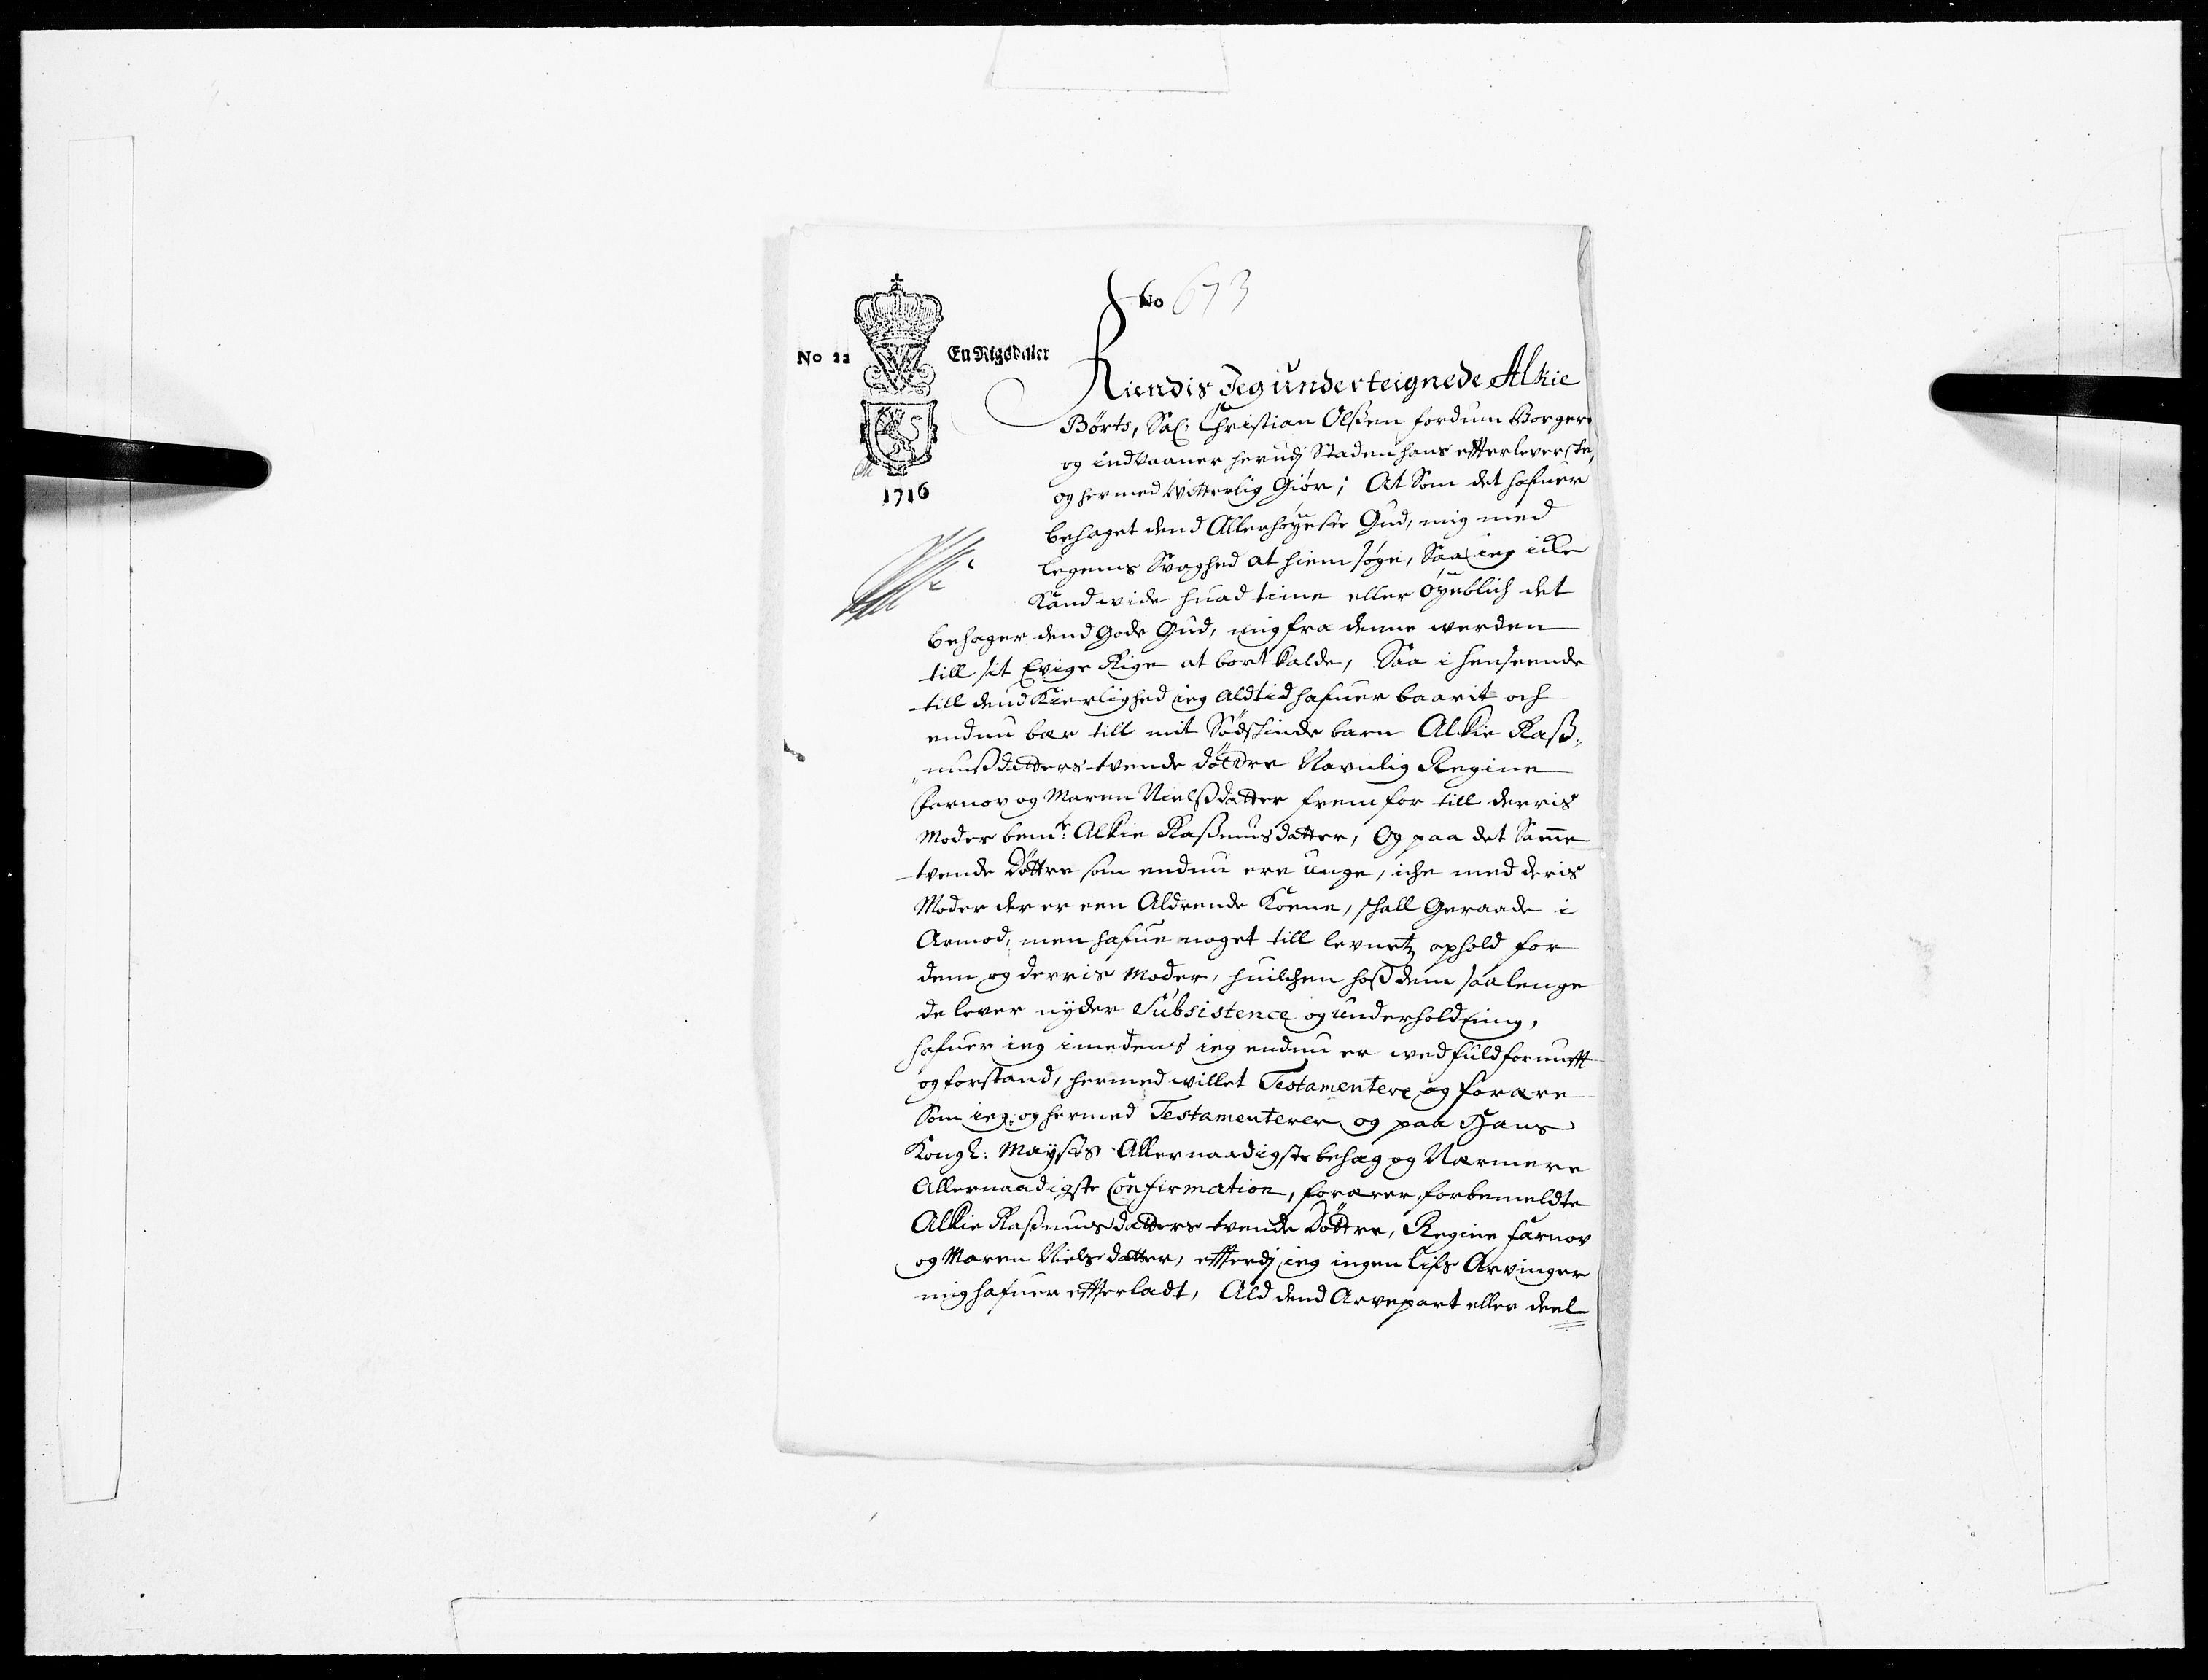 No 673
No 22 En Rigsdaler
1716
Kiendis Jeg underteignede Alkie
Børts, Sal: Christian Olßen fordum Borger
og indvaaner herudj Staden hans efterleverske,
og hermed witterlig Giør; At Som det hafuer
behaget dend Allerhøyeste Gud, mig med
legems Svaghed at hiemsøge, Saa ieg icke
Kand wide huad time eller øyeblich det
behager dend Gode Gud, mig fra denne werden
till sit Evige Rige at bortkalde, Saa i henseende
till dend Kierlighed ieg aldtid hafuer baarit och
endnu bær till mit Sødskinde barn Alkie Raß„
„mußdatters tvende døttre Navnlig Regine
Farnov og Maren Nielßdatter frem for till derris
Moder bemte: Alkie Raßmusdatter, Og paa det Samme
tvende Døttre som endnu ere unge, iche med deris
Moder der er een Aldrende Kone, schall Geraade i
Armod, men hafue noget till levnetz ophold for
dem og derris Moder, huilchen hoß dem saalenge
de lever nyder Subsistence og underholdning,
hafuer ieg imedens ieg endnu er wed fuld fornufft
og forstand, hermed willet Testamentere og forære
Som ieg og hermed Testamenterer og paa Hans
Kongl: Mayſts Allernaadigste behag og Nærmere
Allernaadigste Confirmation, forærer forbemeldte
Alkie Raßmusdatters tvende Døttre, Regine Farnov
og Maren Nielsdatter, efterdj ieg ingen Lifs Arvinger
mig hafuer efterladt, Ald dend Arvepart eller deel